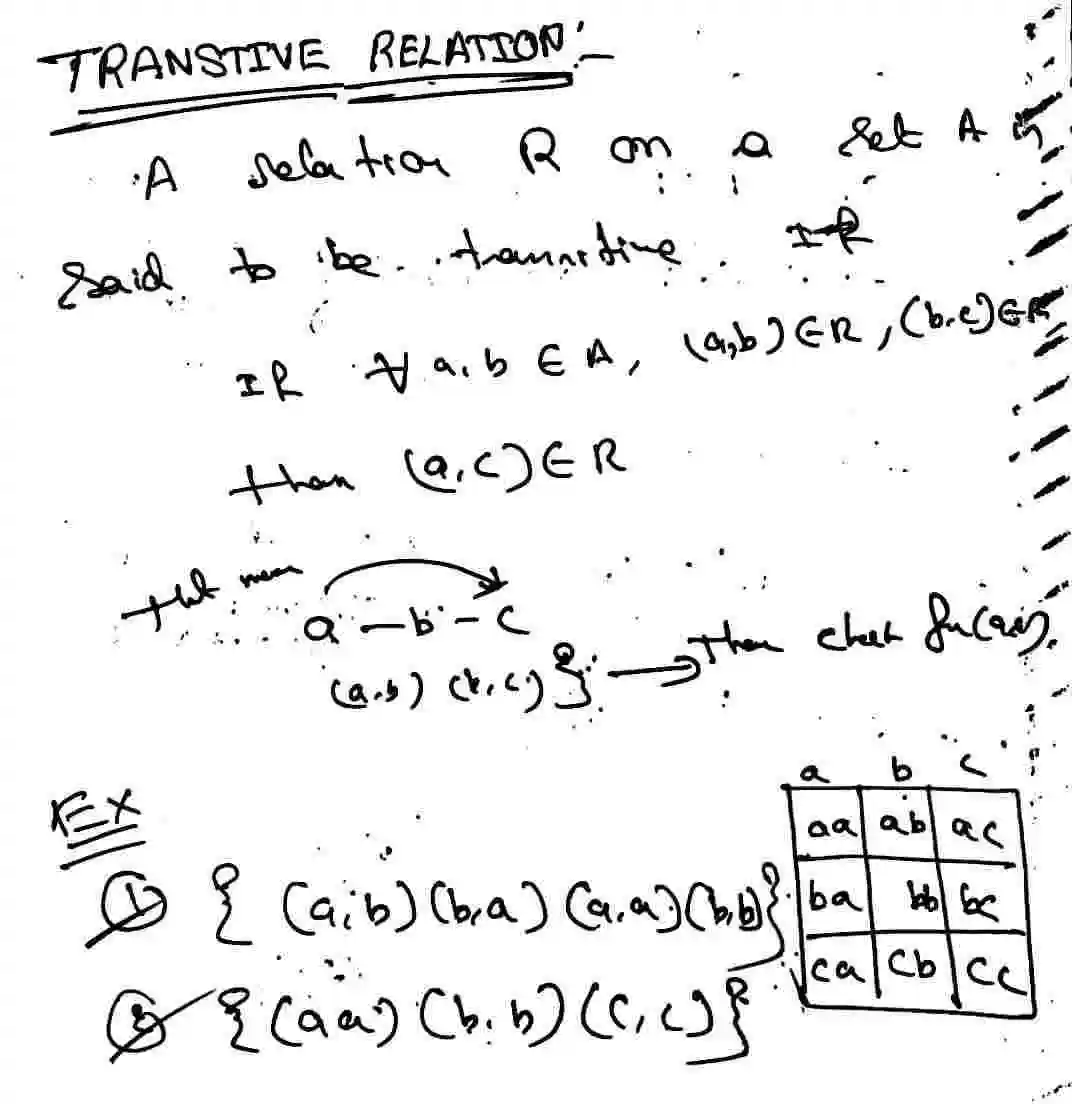 TRANSTIVE RELATION:-
A relation R on a set A is
said to be transitive If
If ∀ a, b ∈ A, (a,b) ∈ R, (b,c) ∈ R
than (a,c) ∈ R
that mean
a - b - c
(a,b) (b,c) } → Then check for (a,c).
EX
a b c
aa ab ac
① { (a,b) (b,a) (a,a) (b,b) }
ba bb bc
② { (aa) (b,b) (c,c) }
ca cb cc